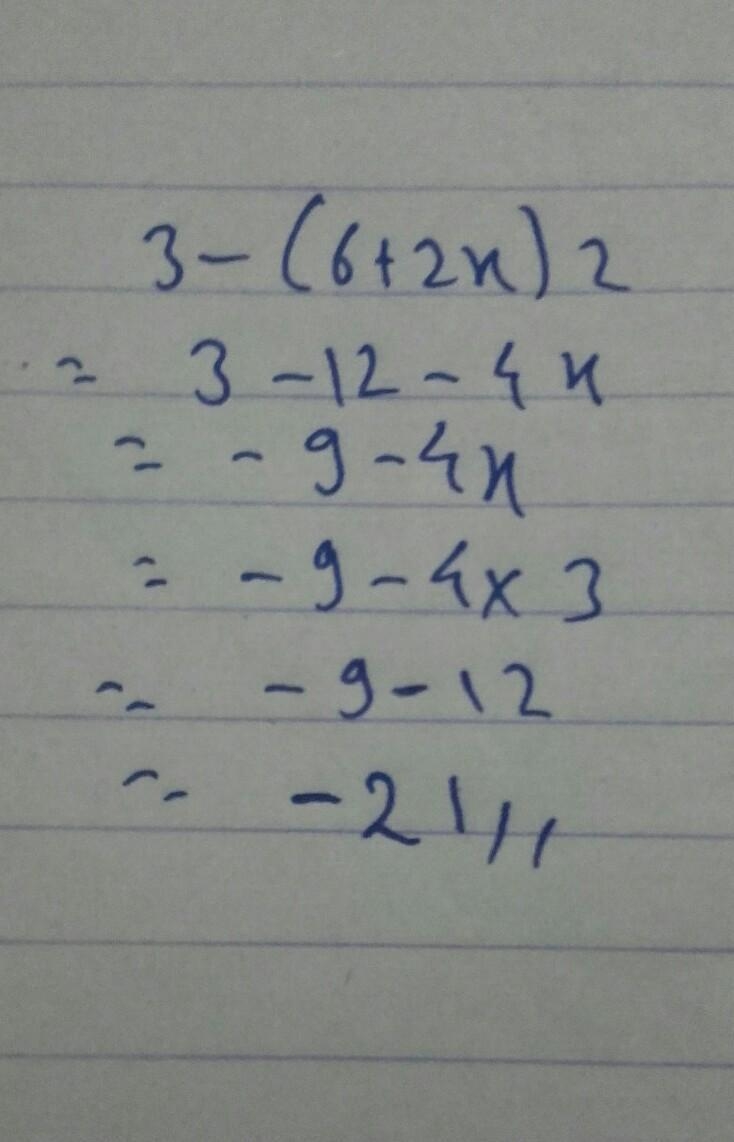 3-(6+2x)2
= 3-12-4x
= -9-4x
= -9-4×3
= -9-12
= -21,,